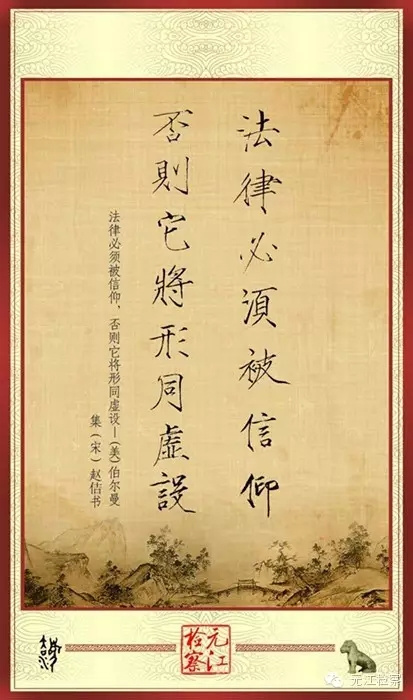 法律必須被信仰
否則它將形同虛設
法律必须被信仰，否则它将形同虚设—(美)伯尔曼
集（宋）赵佶书
元江
检察
元江检察